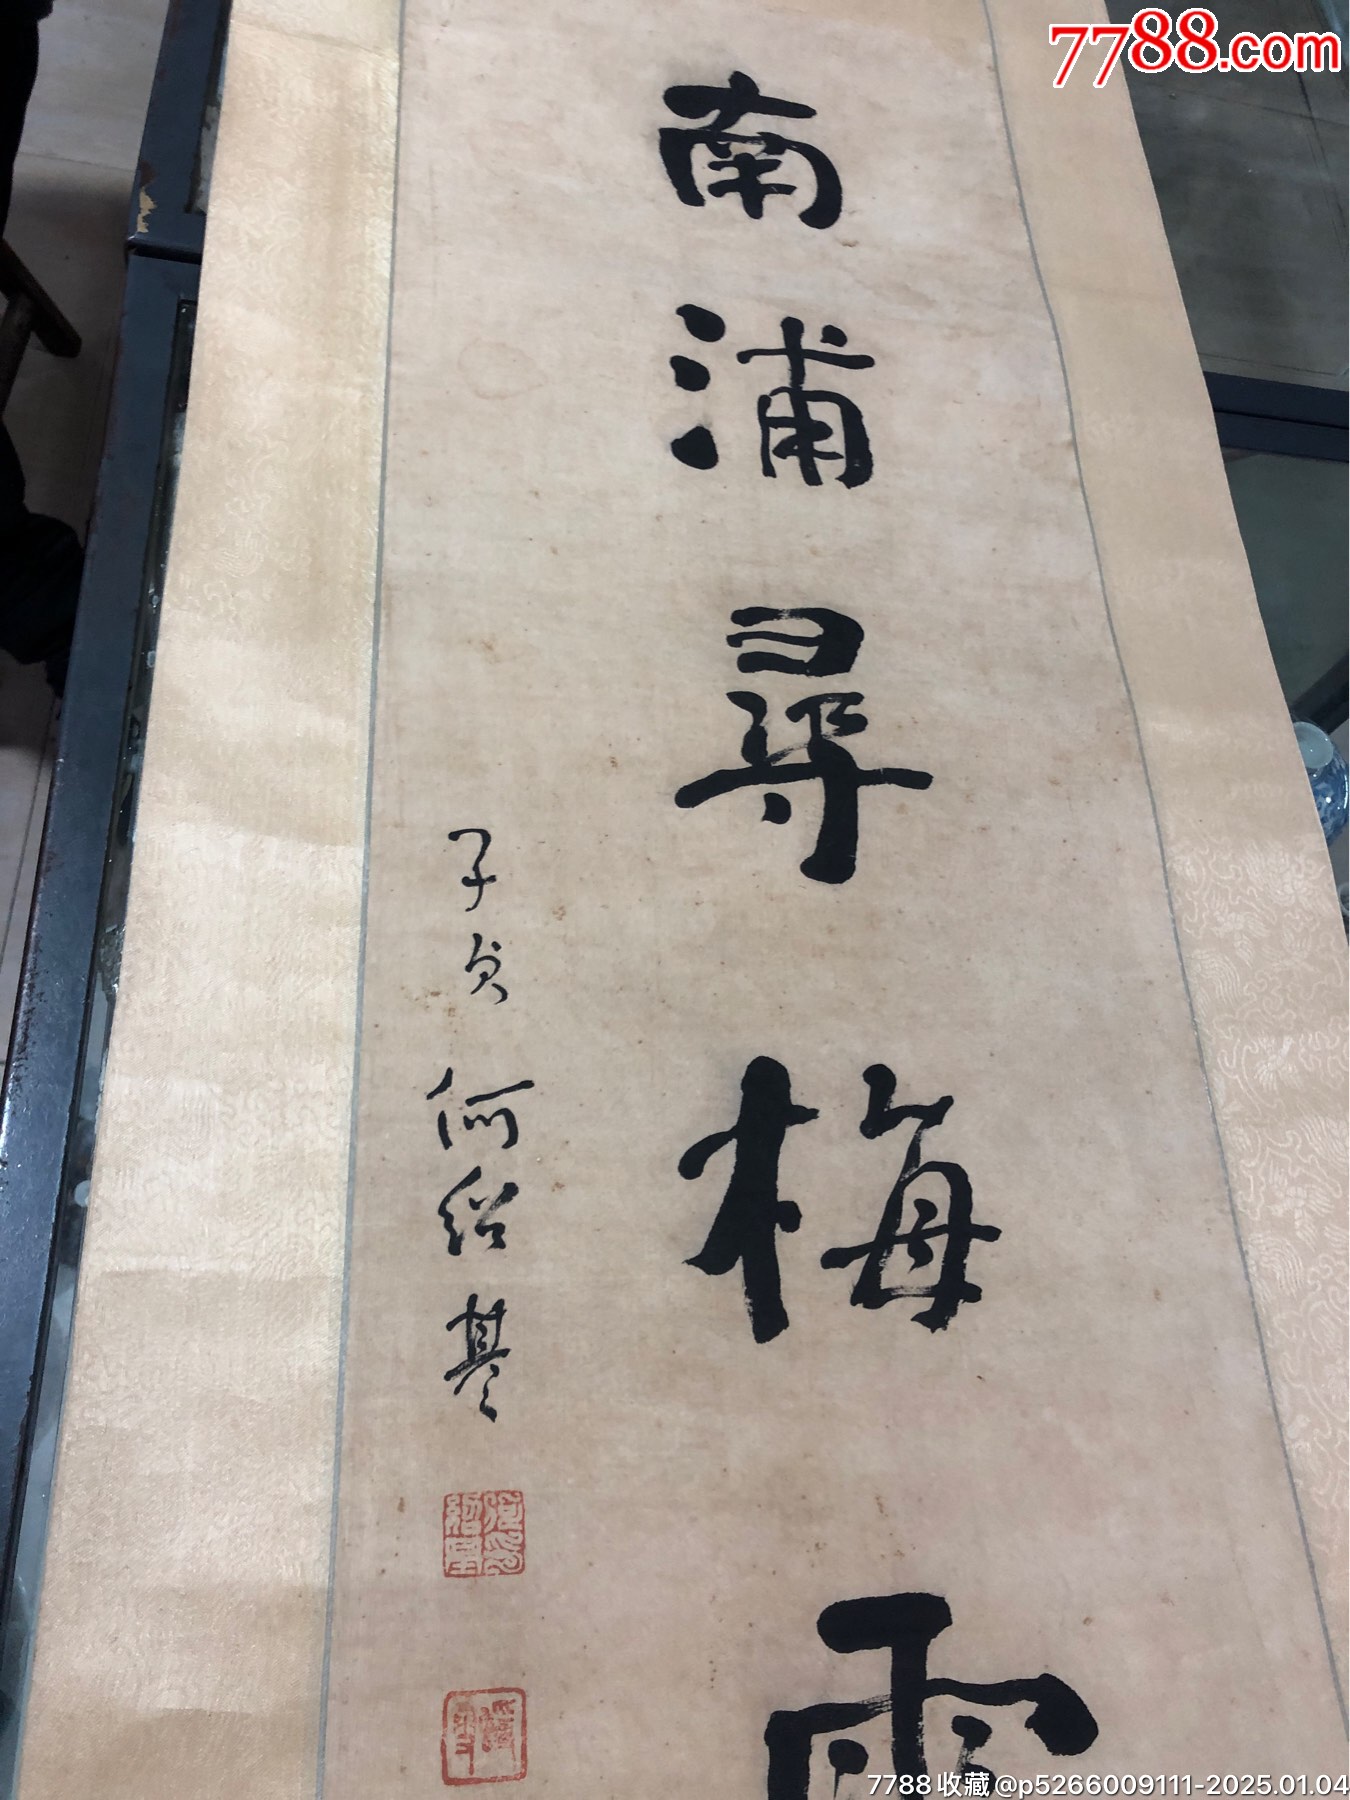 7788.com
南浦尋梅雨
子貞何紹基
7788收藏@p5266009111-2025.01.04